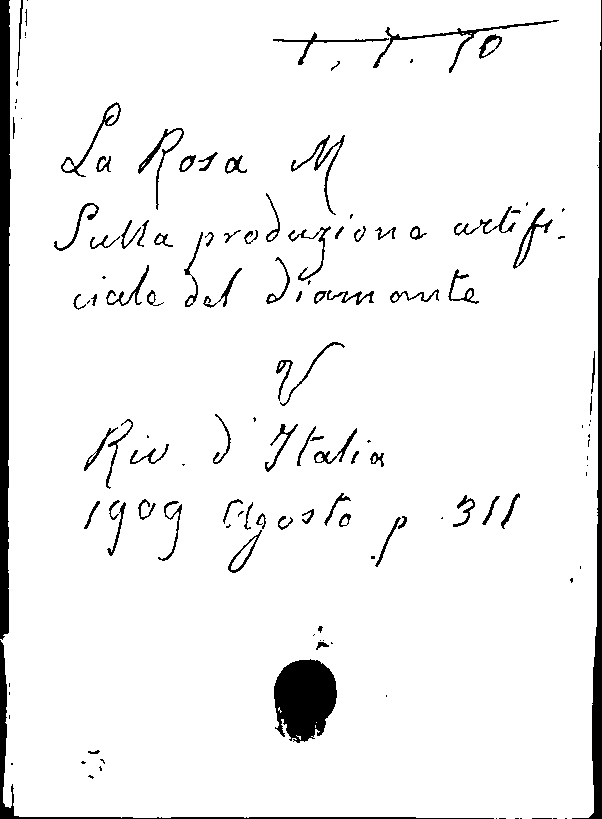 1. 7. 70
La Rosa M
Sulla produzione artifi-
ciale del diamante
V
Riv. d'Italia
1909 Agosto p. 311